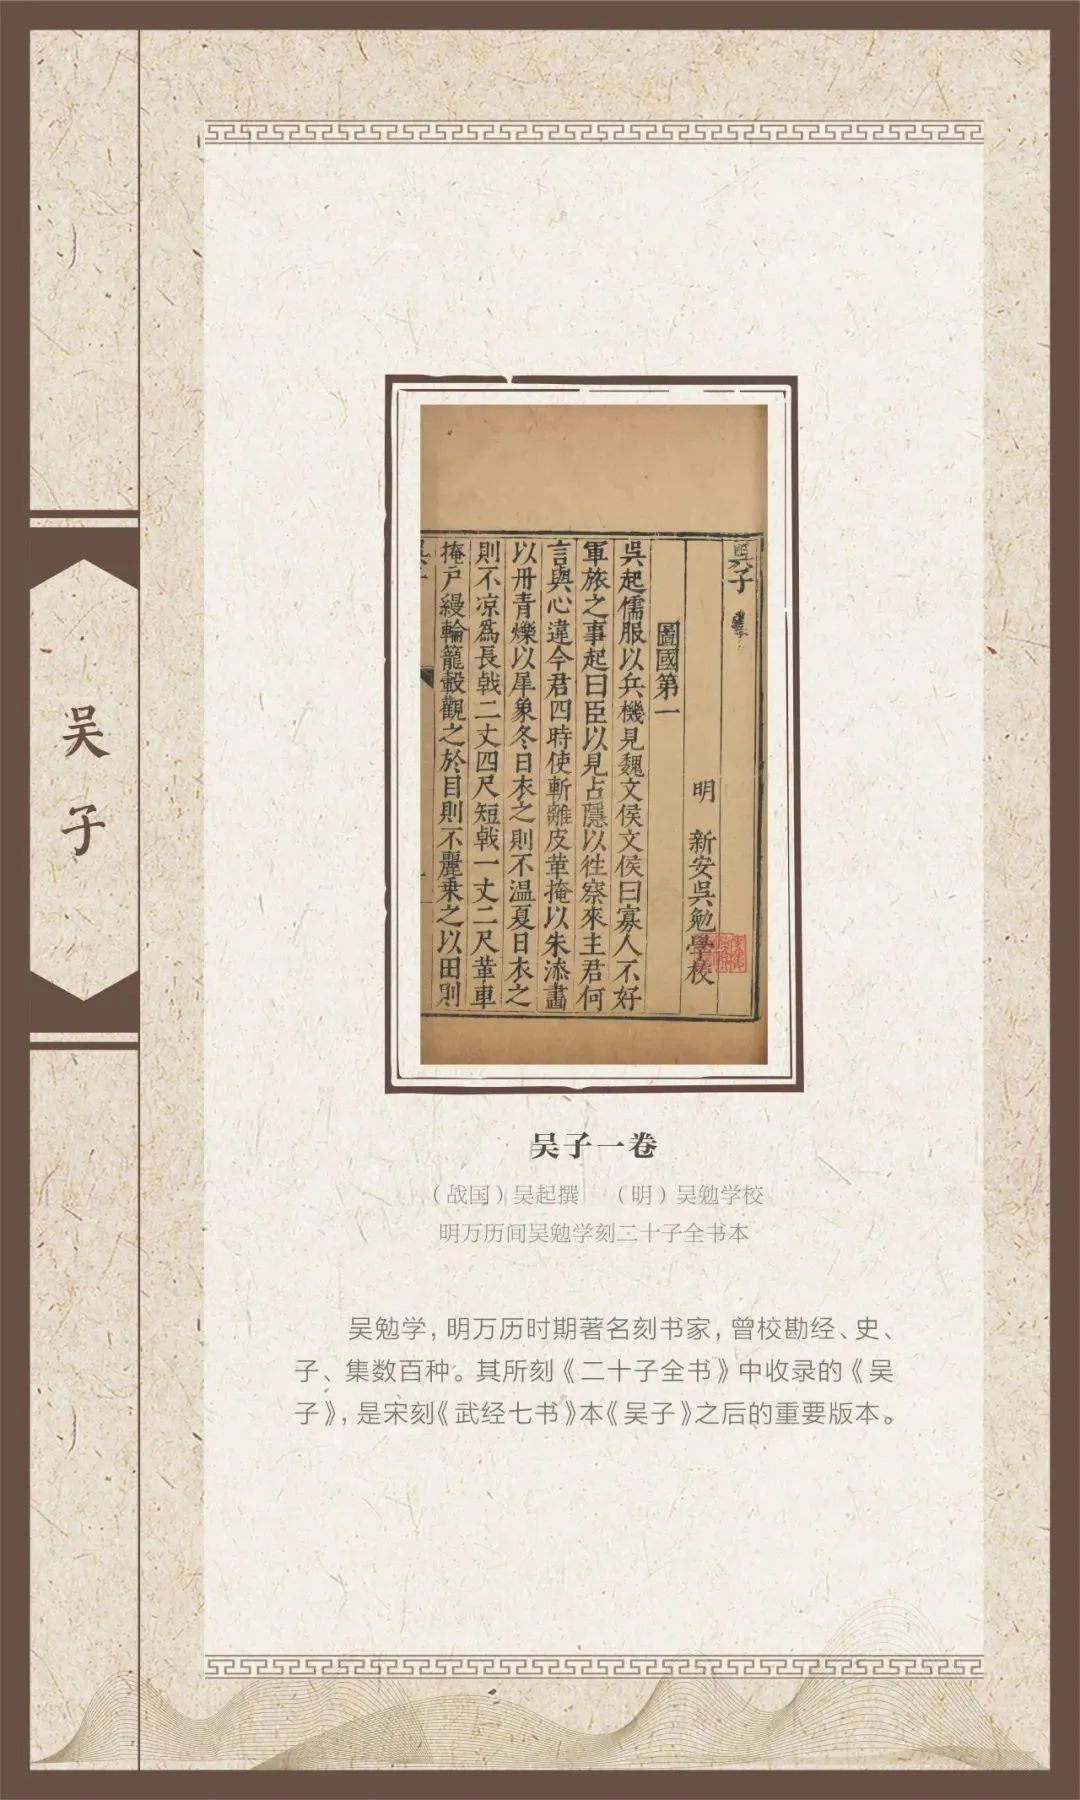 吴子
吳子
明　新安吳勉學校
圖國第一
吳起儒服以兵機見魏文侯文侯曰寡人不好
軍旅之事起曰臣以見占隱以徃察來主君何
言與心違今君四時使斬離皮革掩以朱添畵
以丹青爍以犀象冬日衣之則不温夏日衣之
則不凉爲長戟二丈四尺短戟一丈二尺革車
掩戸縵輪籠轂觀之於目則不麗乗之以田則
吴子一卷
（战国）吴起撰　（明）吴勉学校
明万历间吴勉学刻二十子全书本
吴勉学，明万历时期著名刻书家，曾校勘经、史、
子、集数百种。其所刻《二十子全书》中收录的《吴
子》，是宋刻《武经七书》本《吴子》之后的重要版本。